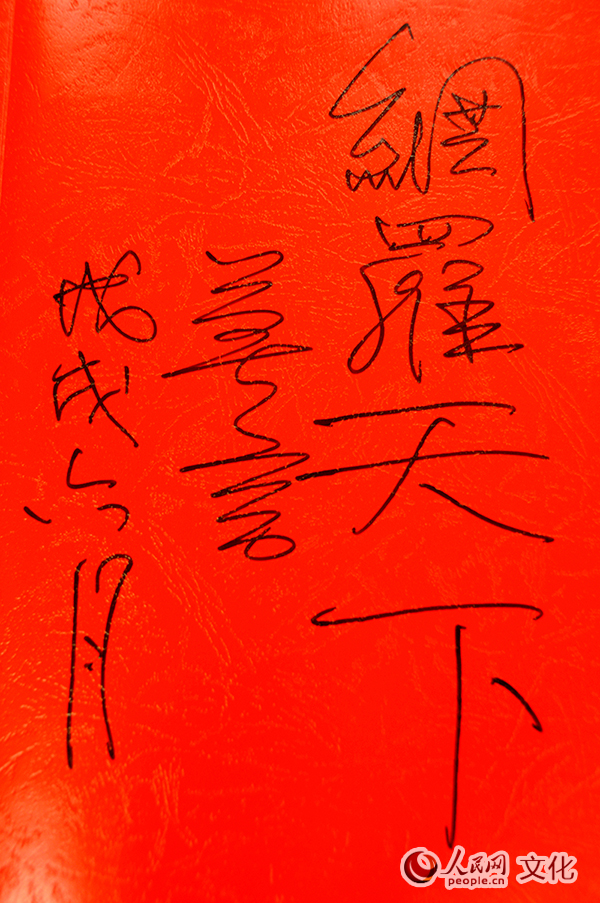 網羅天下
莫言
戊戌六月
人民网 文化
people.cn